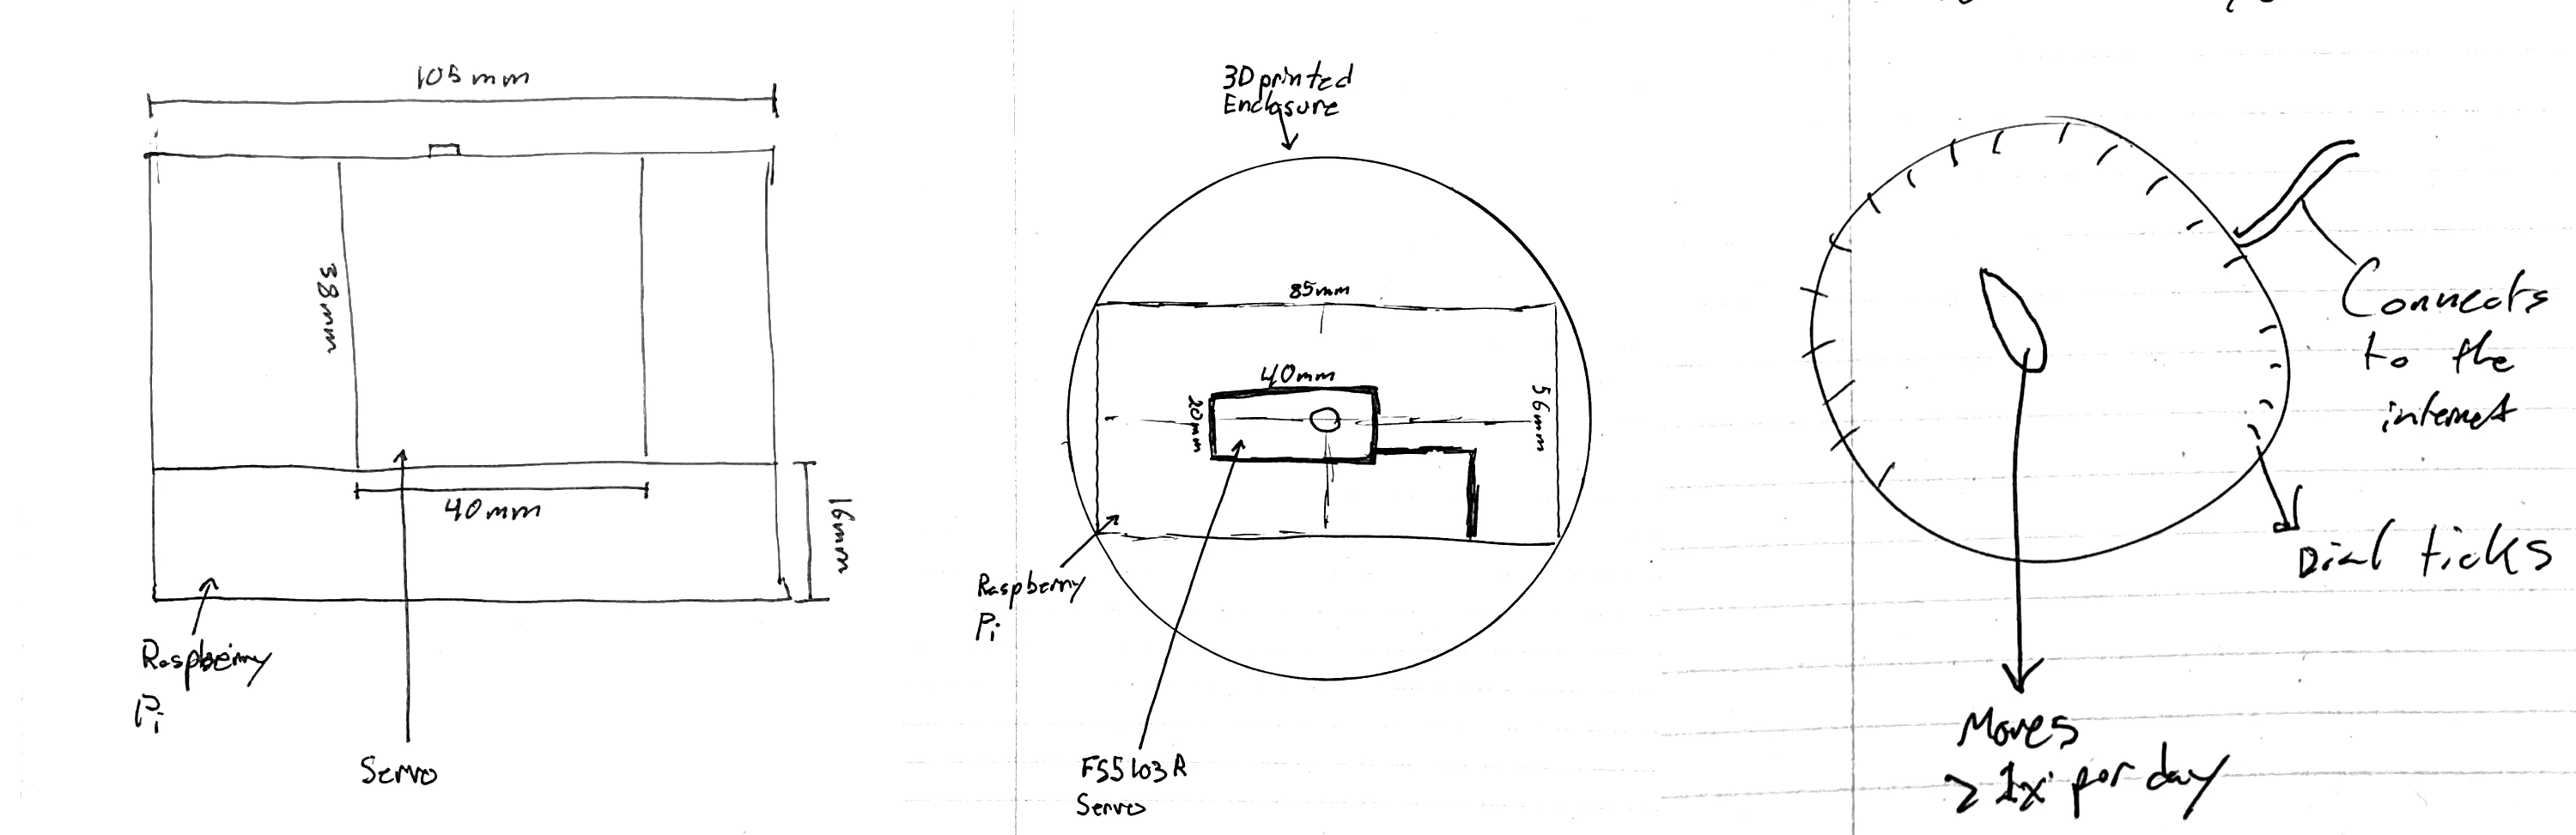 105mm
38mm
40mm
16mm
Raspberry
Pi
Servo
3D printed
Enclosure
85mm
40mm
20mm
56mm
Raspberry
Pi
FS5103R
Servo
Connects
to the
internet
Dial ticks
Moves
≥ 1x per day